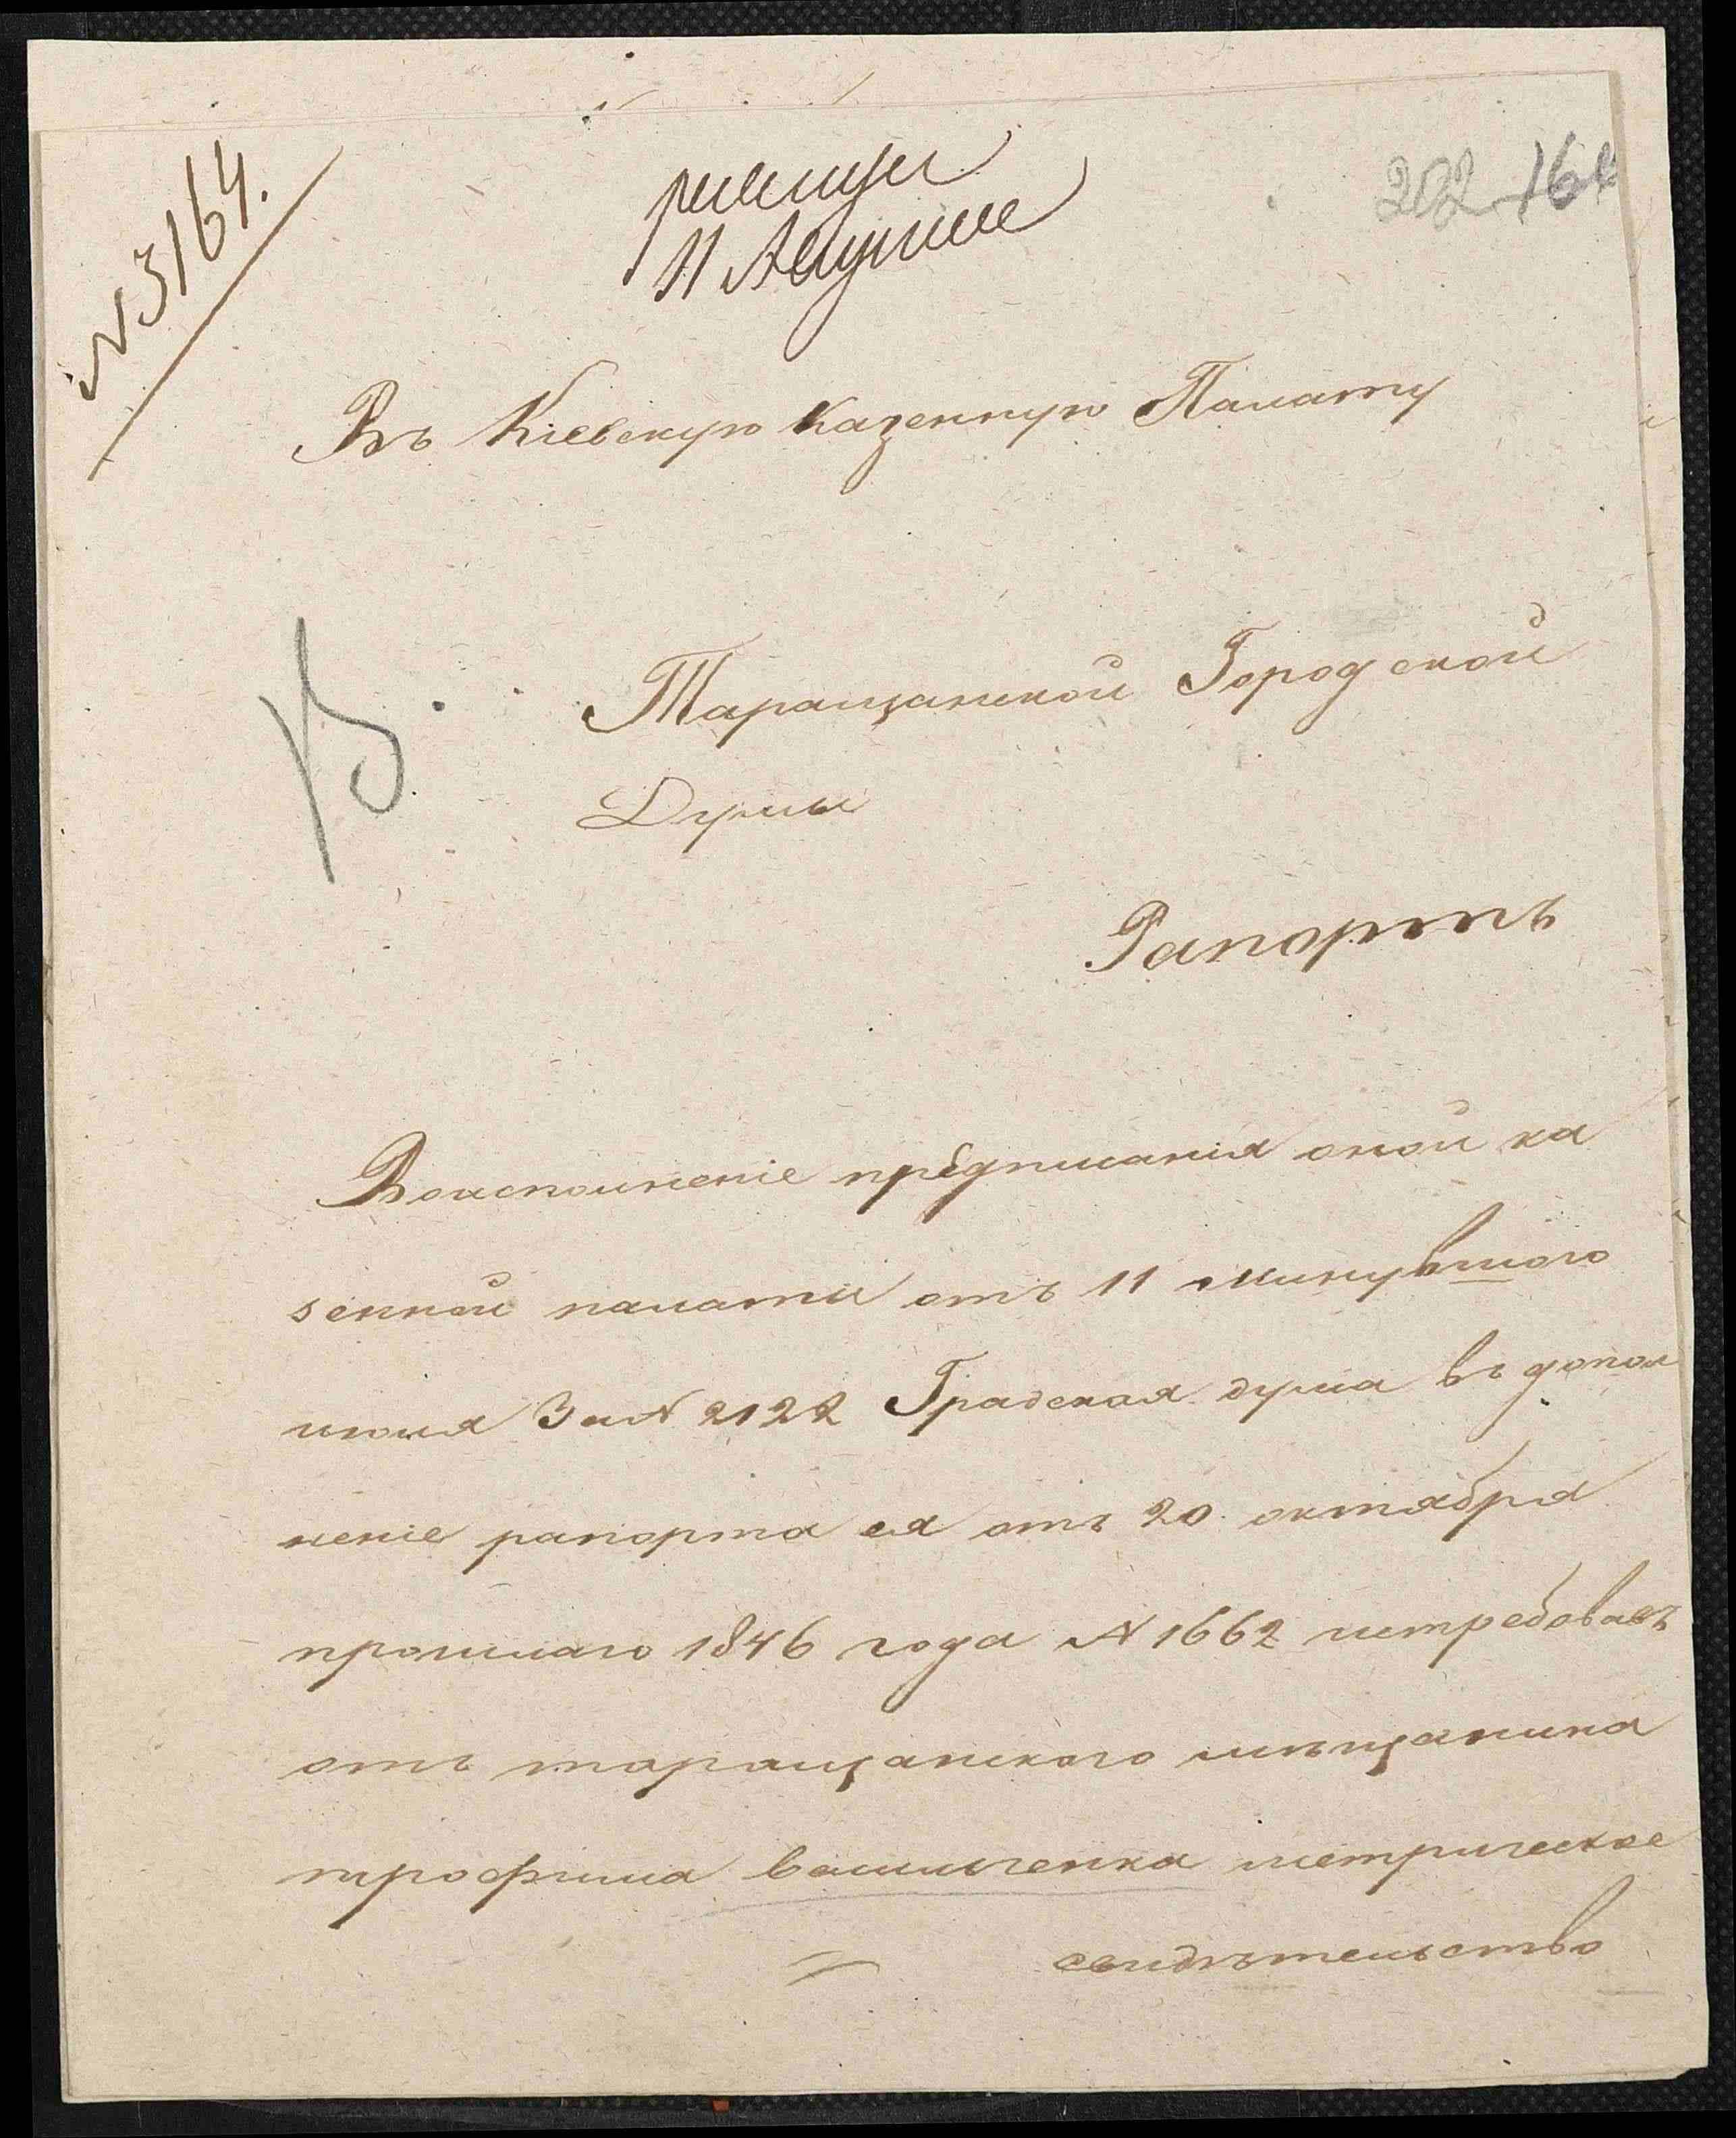 № 3164.
11 Августа
202 16
Въ Кіевскую Казенную Палату
В.
Таращанской Городской
Думы
Рапортъ
Воисполненіе предписанія оной ка
зенной палаты отъ 11 минувшого
июля За № 2122 Градская дума въ допол
неніе рапорта ея отъ 20 октября
прошлаго 1846 года № 1662 истребовавъ
отъ таращанского мѣщанина
трофима васильченка метрическое
свидѣтельство